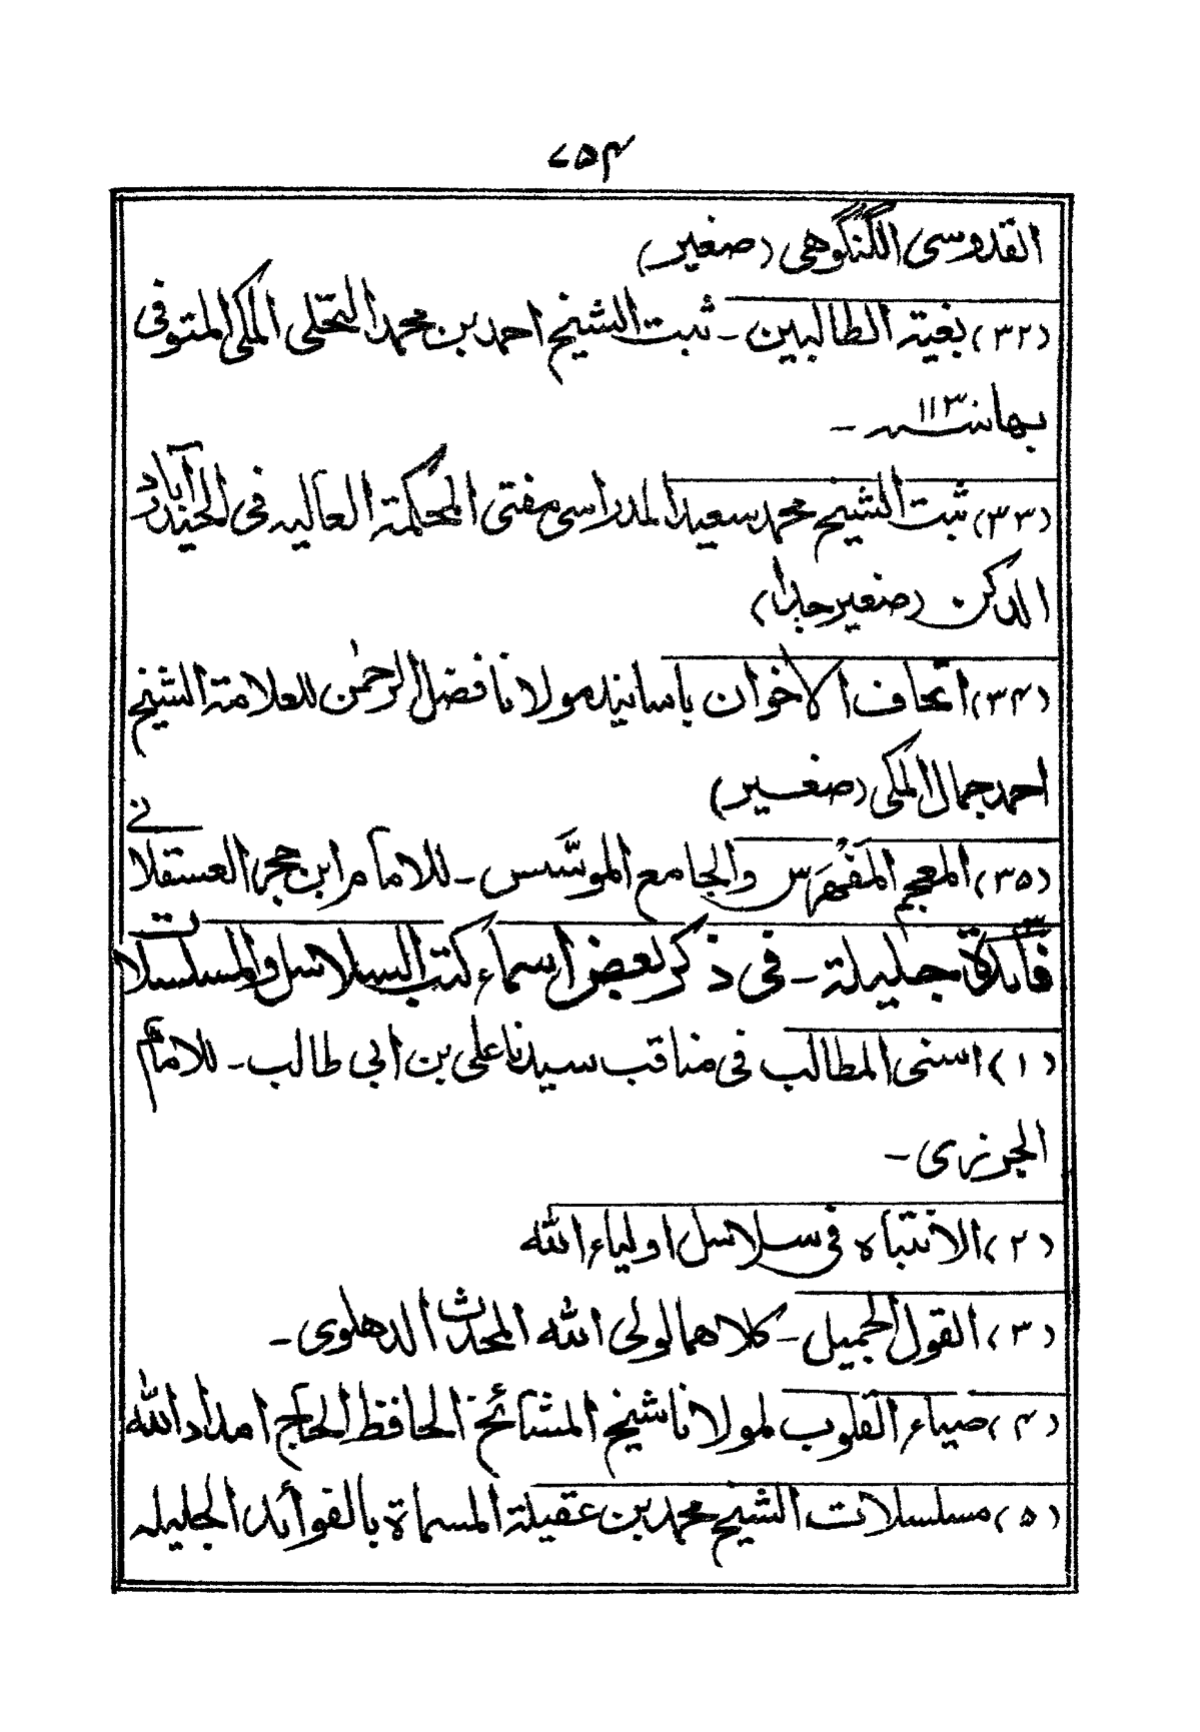 ۷۵۴
القدوسی الگنگوهی (صغیر)
(۳۲) بغیته الطالبین ـ ثبت الشیخ احمد بن محمد النخلی المکی المتوفی
بها سنه ۱۱۳ ـ
(۳۳) ثبت الشیخ محمد سعید المدراسی مفتی المحکمة العالیه فی الحیدرآباد
الدکن (صغیر جدا)
(۳۴) اتحاف الاخوان باسانید مولانا فضل الرحمٰن للعلامة الشیخ
احمد جمال المکی (صغیر)
(۳۵) المعجم المَفَهْرَس والجامع الموسَّس ـ للامام ابن حجر العسقلانی
فائدة جلیلة ـ فی ذکر بعض اسماء کتب السلاسل والمسلسلات
(۱) اسنی المطالب فی مناقب سیدنا علی بن ابی طالب ـ للامام
الجزری ـ
(۲) الانتباه فی سلاسل اولیاء الله
(۳) القول الجمیل ـ کلاهما لولی الله المحدث الدهلوی ـ
(۴) ضیاء القلوب لمولانا شیخ المشائخ الحافظ الحاج امداد الله
(۵) مسلسلات الشیخ محمد بن عقیلة المسماة بالفوائد الجلیله